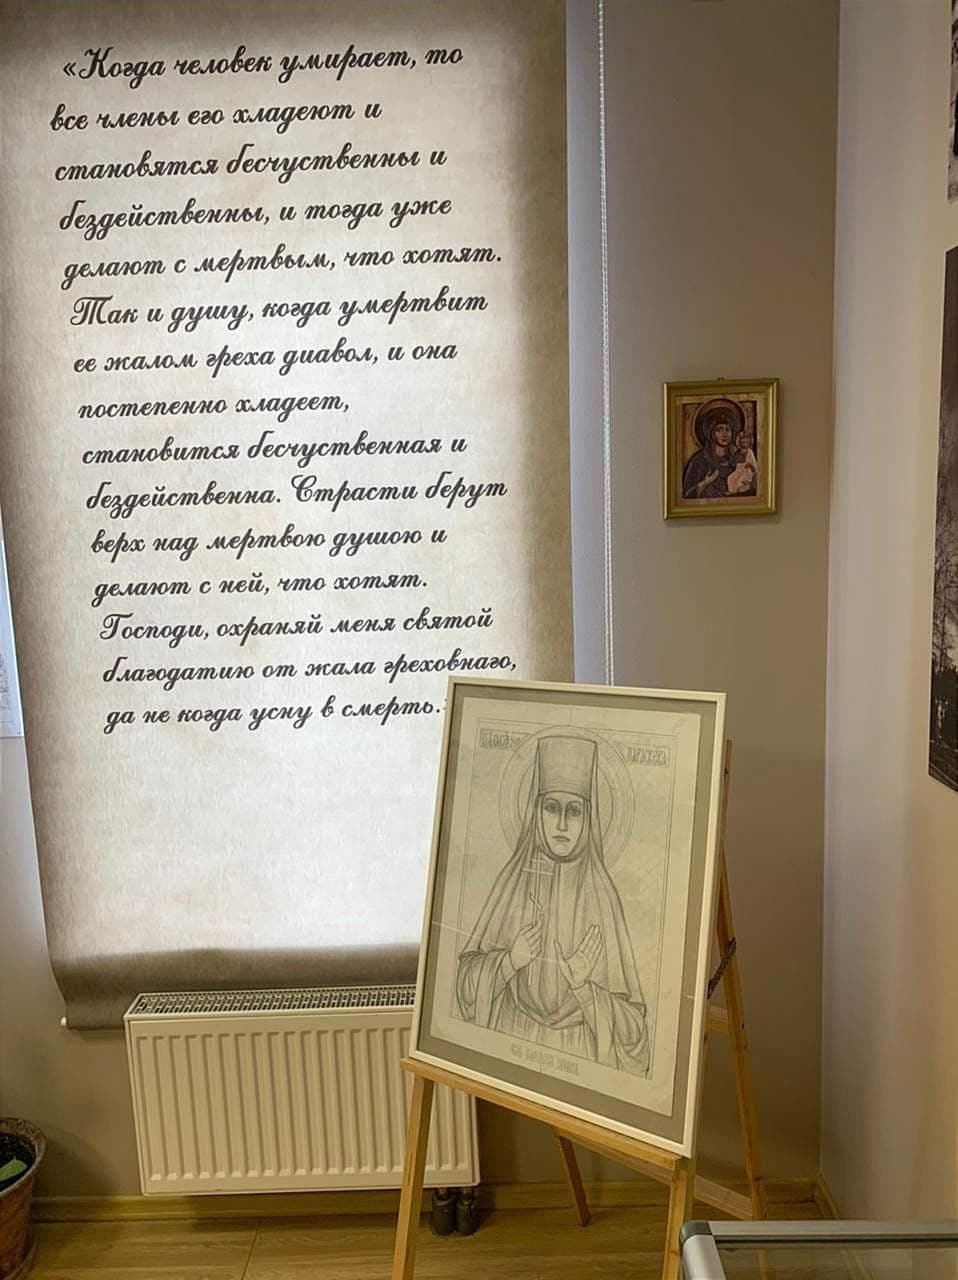 «Когда человек умирает, то
все члены его хладеют и
становятся бесчуственны и
бездейственны, и тогда уже
делают с мертвым, что хотят.
Так и душу, когда умертвит
ее жалом греха диавол, и она
постепенно хладеет,
становится бесчуственная и
бездейственна. Страсти берут
верх над мертвою душою и
делают с ней, что хотят.
Господи, охраняй меня святой
благодатию от жала греховнаго,
да не когда усну в смерть.